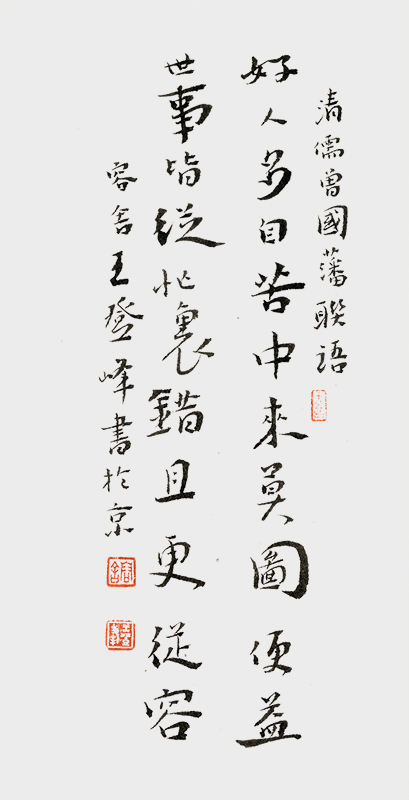 清儒曾國藩聯語
好人多自苦中來莫圖便益
世事皆從忙裏錯且更從容
容舍王登峰書於京